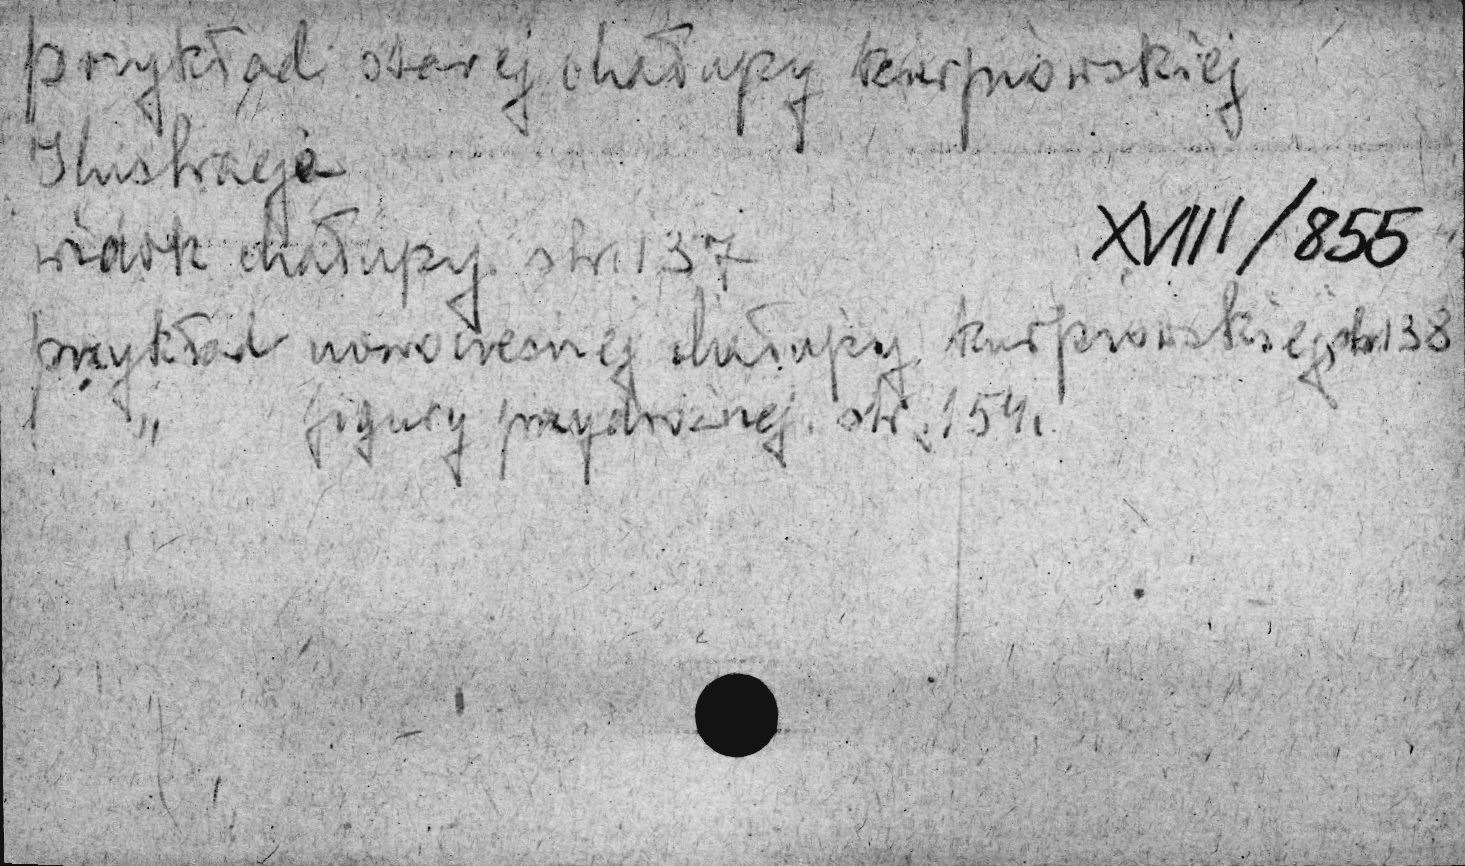 przykład starej chałupy kurpiowskiej
Ilustracja
widok chałupy. str. 137
XVIII/855
przykład nowoczesnej chałupy kurpiowskiej, str. 138
" figury przydrożnej. str. 154.